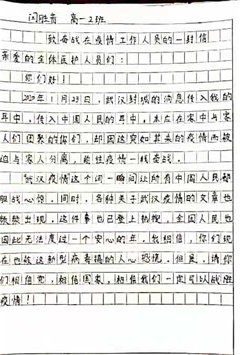 闫胜青 高一2班
致奋战在疫情工作人员的一封信
亲爱的全体医护人员们：
你们好！
2020年1月23日，武汉封城的消息传入我的
耳中，传入中国人民的耳中。本应在家中与家
人们团聚的你们，却因这突如其来的疫情而被
迫与家人分离，前往疫情一线奋战。
武汉疫情这个词一瞬间让所有中国人民都
胆战心惊。同时，各种关于武汉疫情的文章也
频频出现，这件事也已登上热搜。全国人民也
因此无法度过一个安心的年。我相信，你们现
在也被这新型病毒搞的人心恐慌。但是，请你
们相信党，相信国家，相信我们一定可以战胜
疫情！